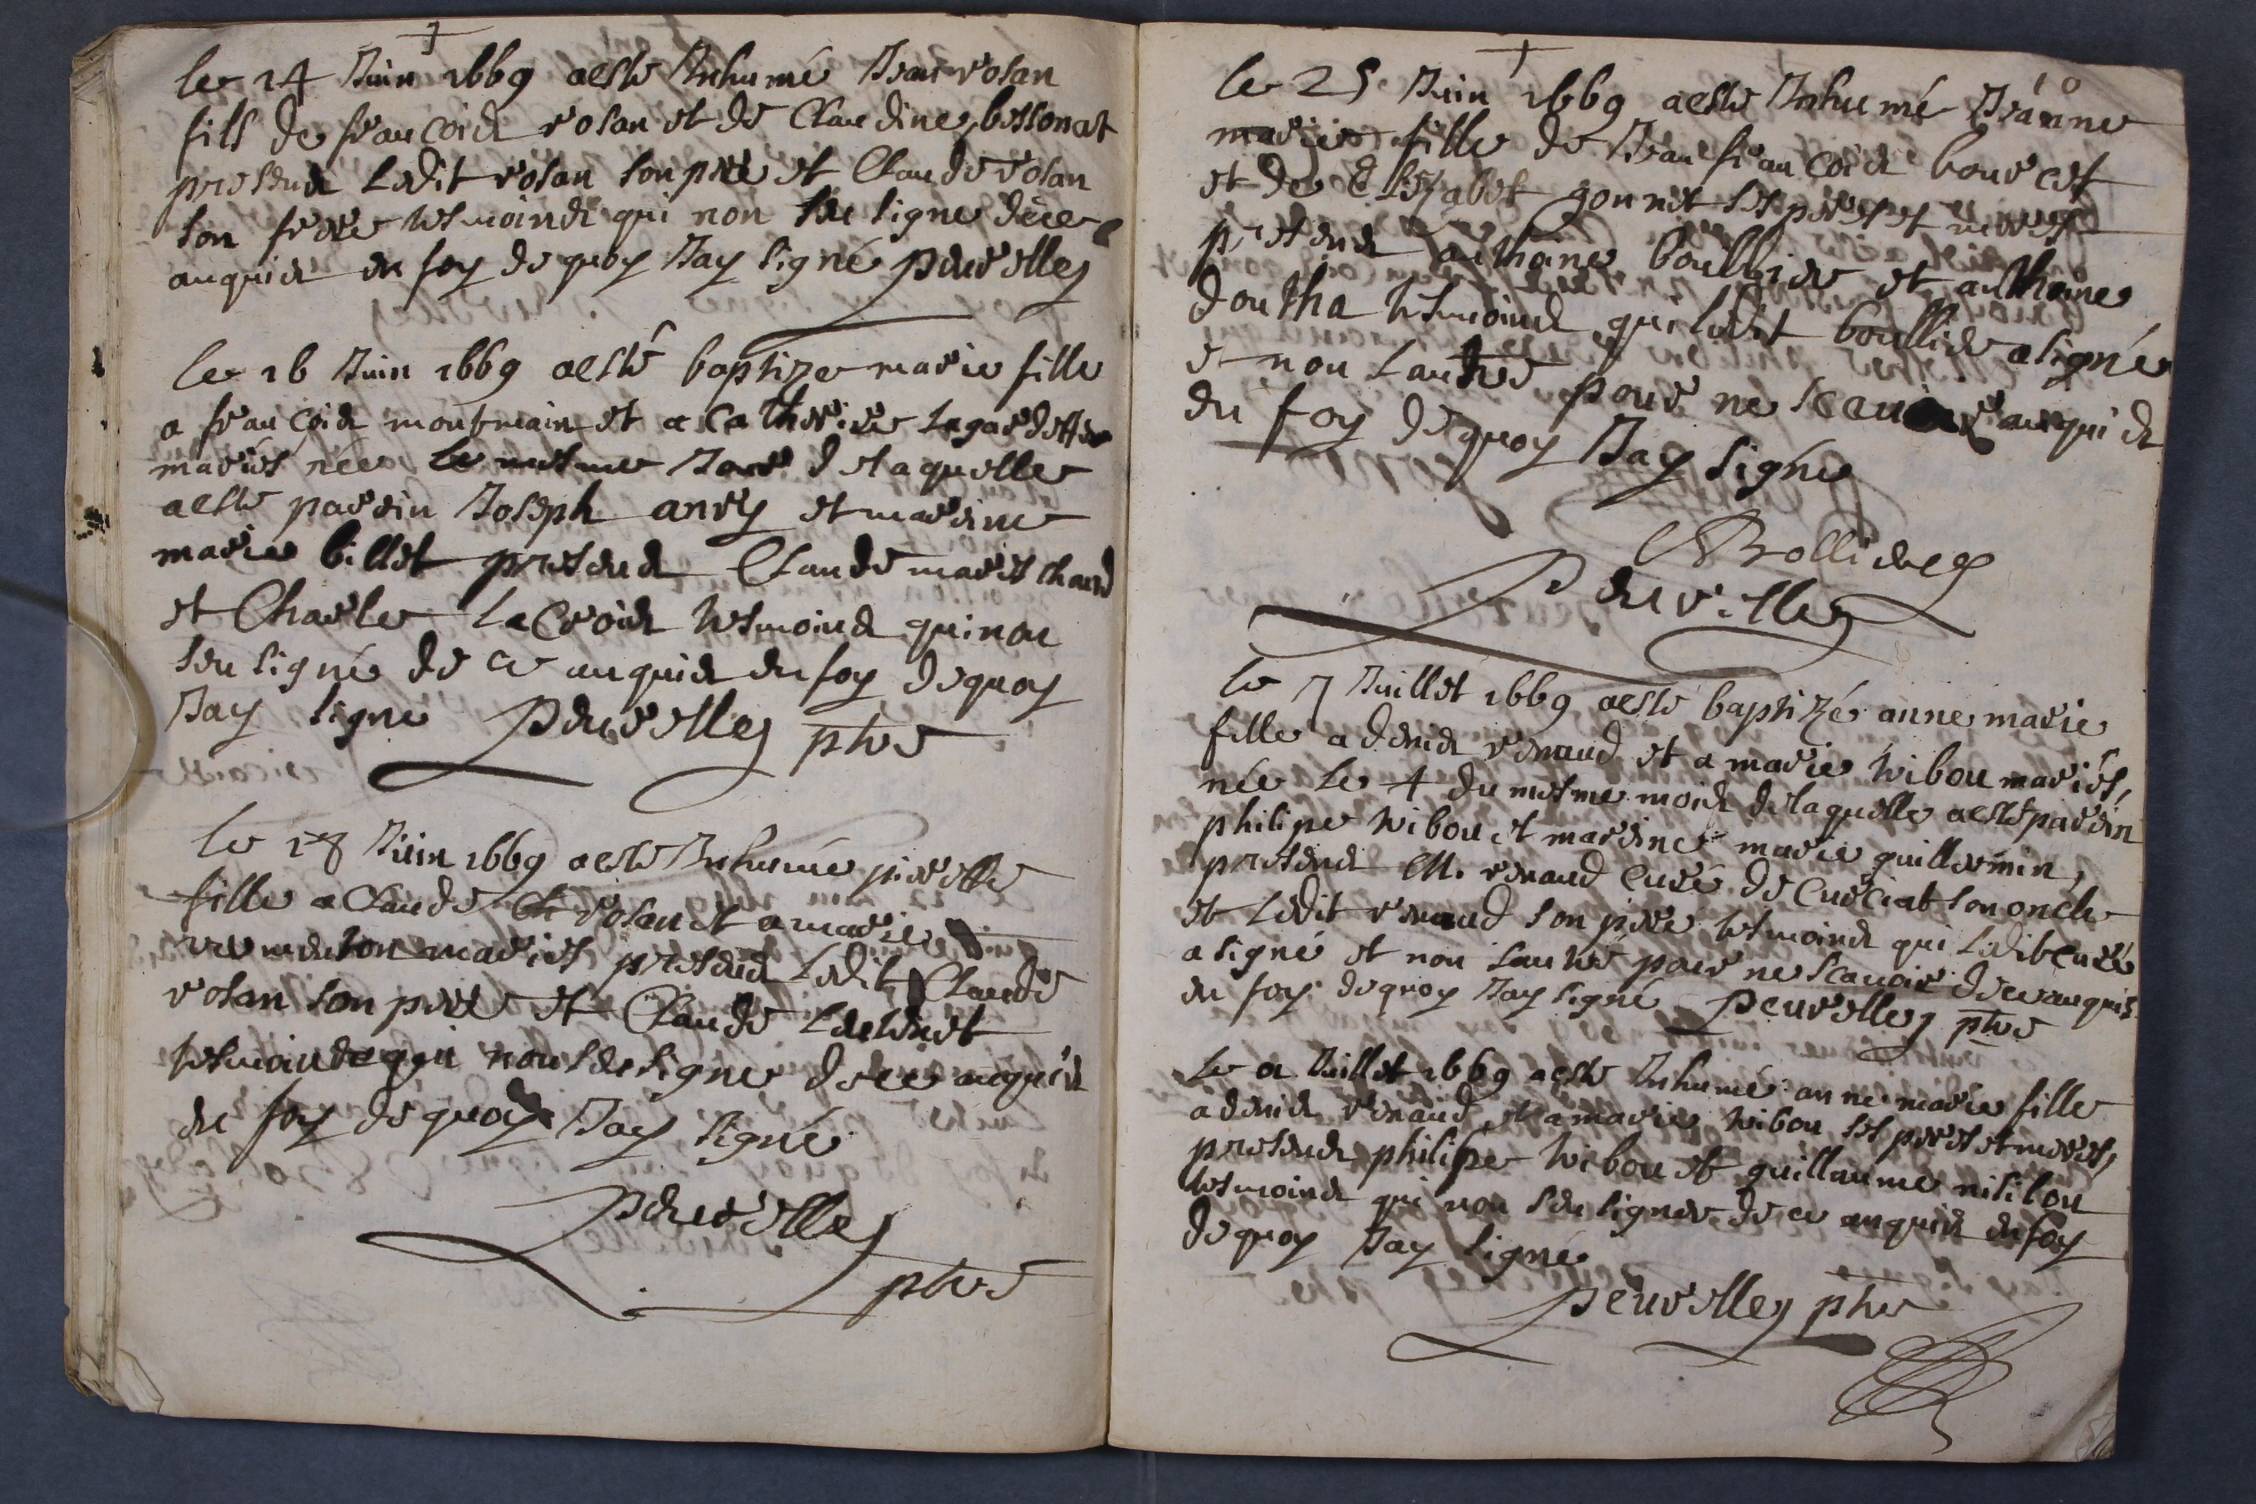 le 14 Juin 1669 aesté Inhumé Jean rosan
fils de francois rosan et de Claudine bessonat
presens Ledit rosan son pere et Claude rosan
son frere tesmoins qui non sceu signe dece
anquis en foy de quoy Jay signé peuvelley
le 16 Juin 1669 aesté baptize marie fille
a francois montmain et a Catherine Lagardette
mariés née le mesme Jour delaquelle
aesté parrin Joseph anry et marine
marie billet presens Claude maréschard
et Charle LaCroix tesmoins qui non
seu signé de ce anquis en foy dequoy
Jay signé peuvelley ptre
le 18 Juin 1669 aesté Inhumé pierrette
fille a Claude rosan et a marie
mariés presens Ledit Claude
rosan son pere et Claude
tesmoins qui non seu signe dece anquis
en foy dequoy Jay signé
peuvelley
ptre
10
le 25 Juin 1669 aesté Inhumé Jeanne
marie fille de Jean francois bourcet
et de Elizabet gonnet ses peres et meres
presens anthoine boullier et anthoine
doutha tesmoins qui ledit boullier a signé
et non Lautre pour ne scavoir anquis
en foy dequoy Jay signé
Bollier
peuvelley
le 7 Juillet 1669 aesté baptizé anne marie
fille a denis renaud et a marie tribou mariés,
née le 4 du mesme mois delaquelle aesté parrin
philipe tribou et marine marie guillermin,
presens M. renaud Curé de Curciat son oncle
et Ledit renaud son pere tesmoins qui Ledit curé
a signé et non lautre pour ne scavoir dece anquis
en foy dequoy Jay signé peuvelley ptre
Le Juillet 1669 aesté Inhumé anne marie fille
a denis renaud et a marie tribou ses peres et meres,
presens philipe tribou et guillaume
tesmoins qui non seu signer de ce anquis en foy
dequoy Jay signé
peuvelley ptre